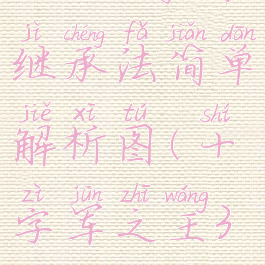 jì chéng fǎ jiǎn dān
继承法简单
jiě xī tú shí
解析图(十
zì jūn zhī wáng
字军之王3